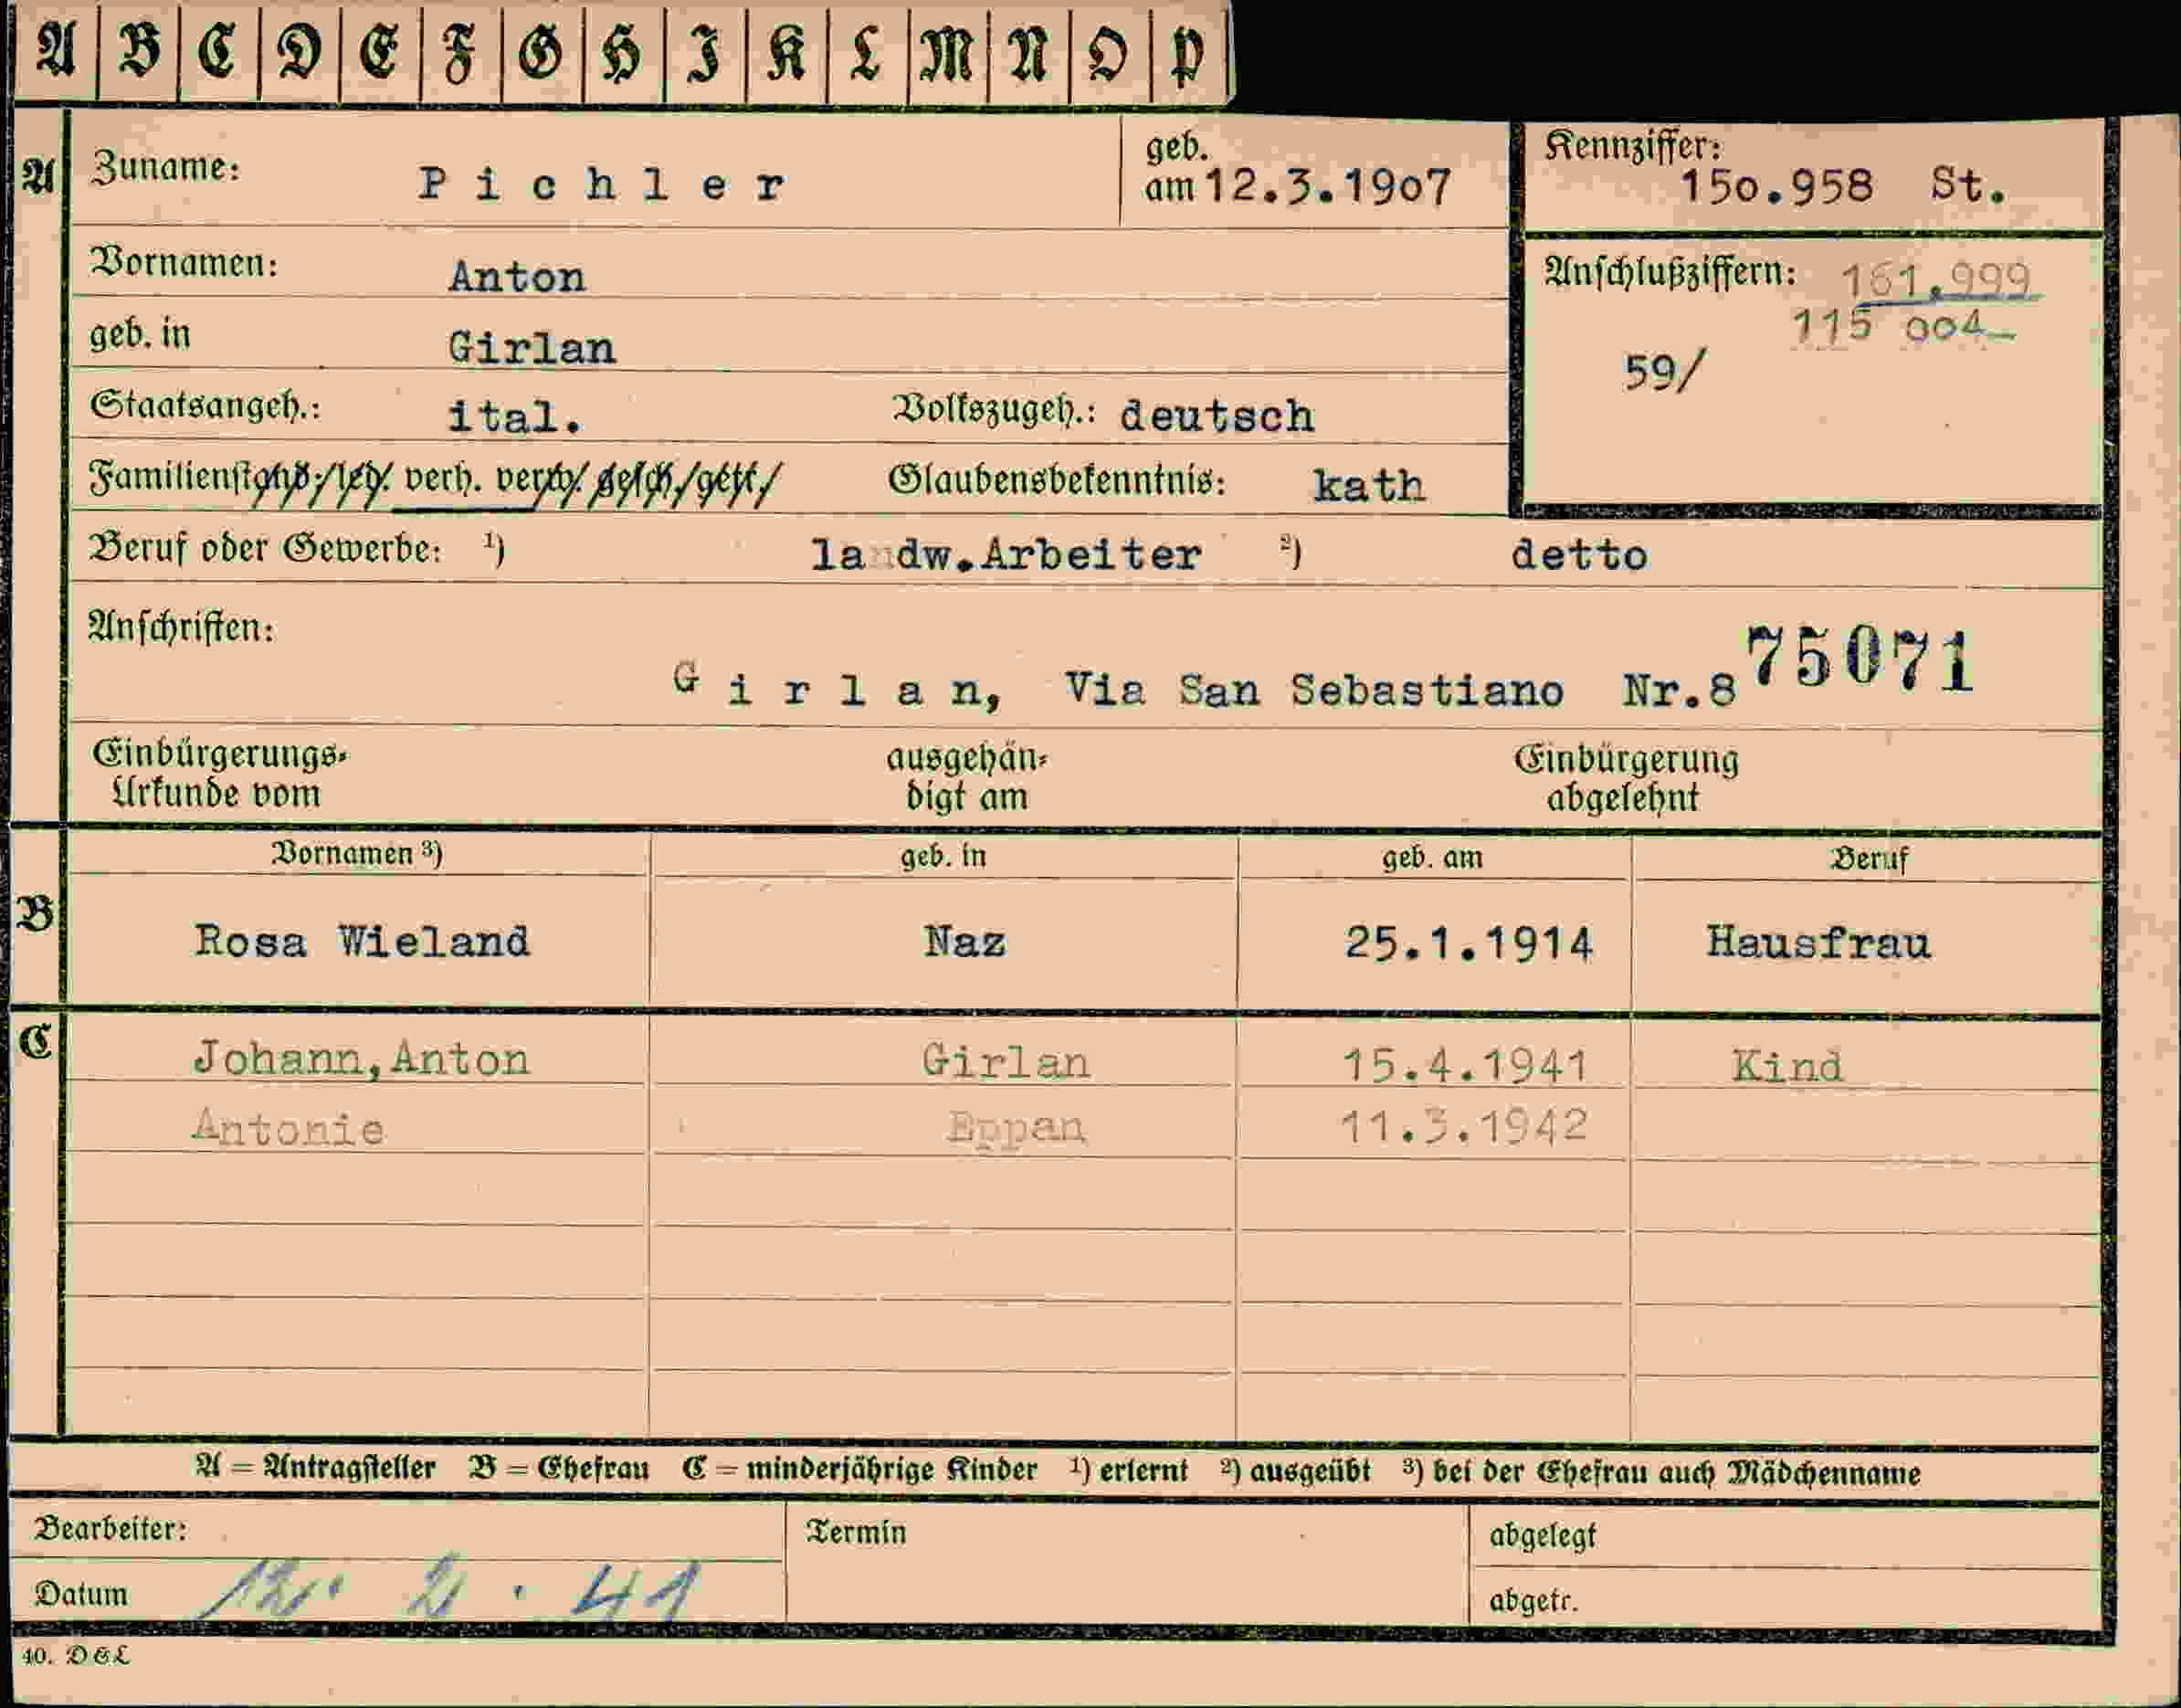 A B C D E F G H I K L M N O P
A Zuname: Pichler geb. am 12.3.1907 Kennziffer: 15o.958 St.
Vornamen: Anton Anschlußziffern: 161.999
115 oo4
geb. in Girlan 59/
Staatsangeh.: ital. Volkszugeh.: deutsch
Familienstand: led. verh. verw. gesch. getr. Glaubensbekenntnis: kath
Beruf oder Gewerbe: ¹) landw.Arbeiter ²) detto
Anschriften:
Girlan, Via San Sebastiano Nr.8 75071
Einbürgerungs-Urkunde vom ausgehändigt am Einbürgerung abgelehnt
Vornamen ³) geb. in geb. am Beruf
B Rosa Wieland Naz 25.1.1914 Hausfrau
C Johann,Anton Girlan 15.4.1941 Kind
Antonie Eppan 11.3.1942
A = Antragsteller B = Ehefrau C = minderjährige Kinder ¹) erlernt ²) ausgeübt ³) bei der Ehefrau auch Mädchenname
Bearbeiter: Termin abgelegt
Datum 12. 2. 41 abgetr.
40. D&L